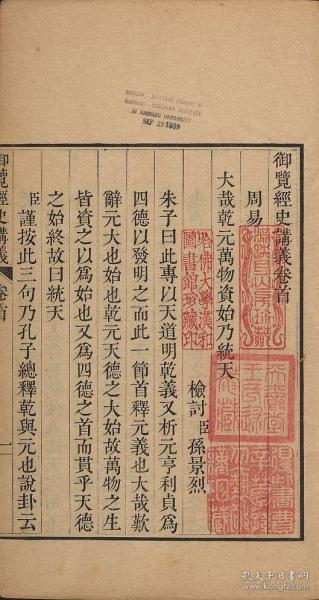 御覽經史講義卷首
周易
大哉乾元萬物資始乃統天
檢討臣孫景烈
朱子曰此專以天道明乾義又析元亨利貞爲
四德以發明之而此一節首釋元義也大哉歎
辭元大也始也乾元天德之大始故萬物之生
皆資之以爲始也又爲四德之首而貫乎天德
之始終故曰統天
臣謹按此三句乃孔子總釋乾與元也說卦云
御覽經史講義 卷首 一
哈佛大學漢和
圖書館珍藏印
AT HARVARD UNIVERSITY
SEP 25 1939
孔夫子旧书网